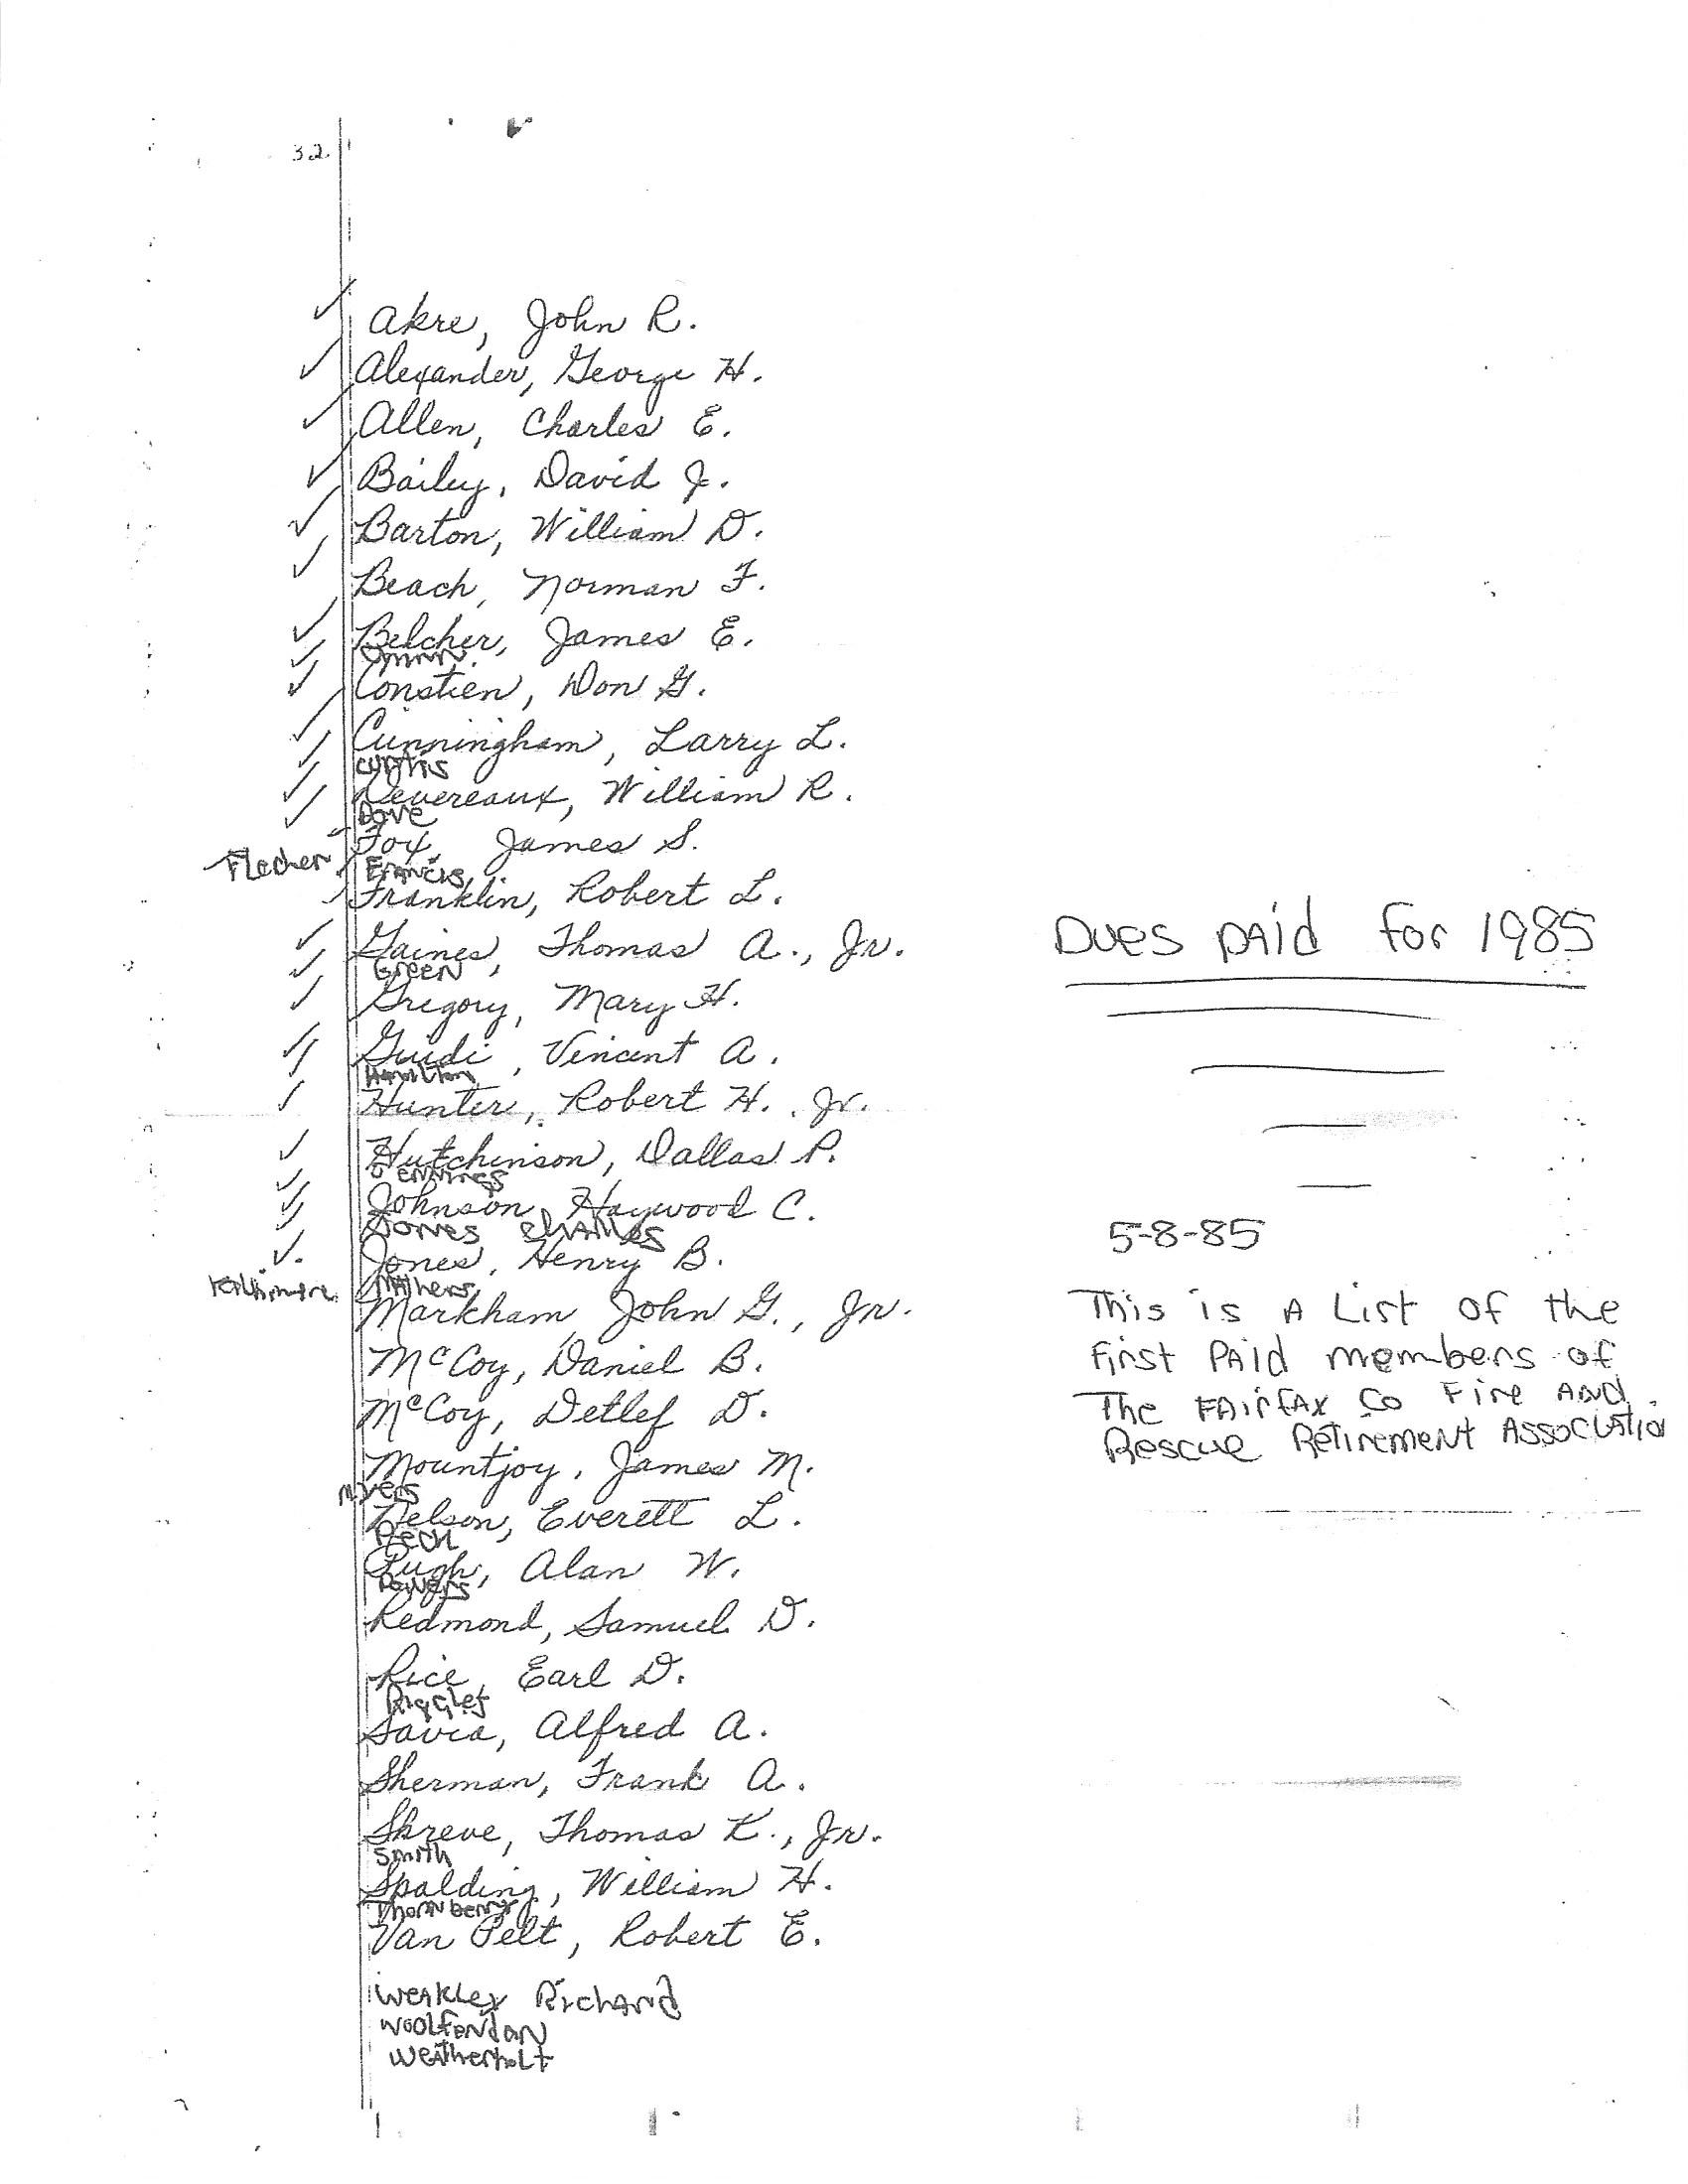 32
✓ Akre, John R.
✓ Alexander, George H.
✓ Allen, Charles E.
✓ Bailey, David J.
✓ Barton, William D.
✓ Beach, Norman F.
✓ Belcher, James E.
✓ Constien, Don G.
✓ Cunningham, Larry L.
✓ Curtis
✓ Devereaux, William R.
✓ Dove
Fox, James S.
Flecher
Francis
Franklin, Robert L.
✓ Gaines, Thomas A., Jr.
✓ Green
✓ Gregory, Mary H.
✓ Guidi, Vincent A.
Hamilton
✓ Hunter, Robert H., Jr.
✓ Hutchinson, Dallas P.
✓ Jennings
✓ Johnson, Haywood C.
Jones Charles
✓ Jones, Henry B.
Mathers
Markham, John G., Jr.
McCoy, Daniel B.
McCoy, Detlef D.
Mountjoy, James M.
Myers
Nelson, Everett L.
Peck
Pugh, Alan W.
Powers
Redmond, Samuel D.
Rice, Earl D.
Savia, Alfred A.
Sherman, Frank A.
Shreve, Thomas K., Jr.
Smith
Spalding, William H.
Thornberry
Van Pelt, Robert E.
Weakley Richard
Woolfendan
Weatherholt
Dues PAid for 1985
5-8-85
This is A List of the
First PAid members of
The FAirfAx Co Fire AND
Rescue Retirement Associatio